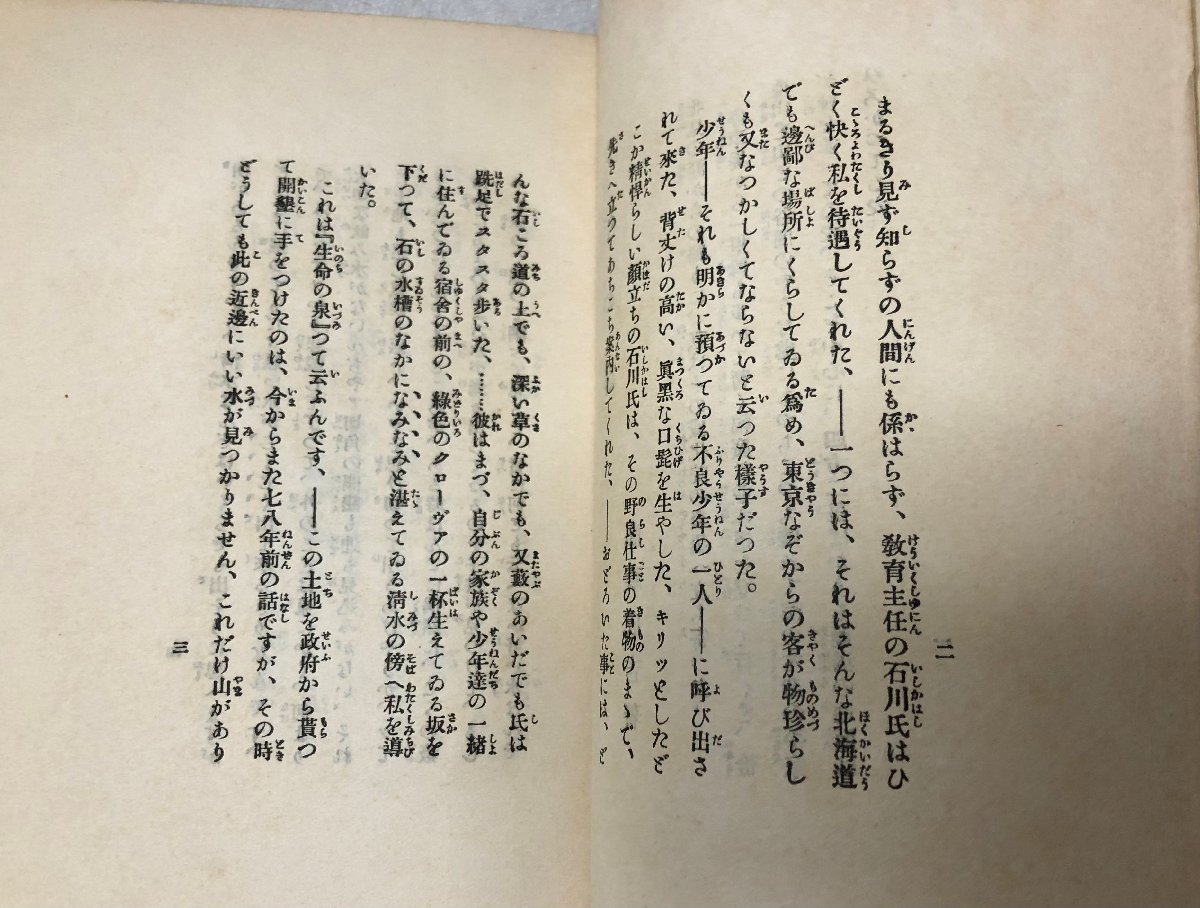 二
まるきり見ず知らずの人間にも係はらず、敎育主任の石川氏はひ
どく快く私を待遇してくれた、――一つには、それはそんな北海道
でも邊鄙な場所にくらしてゐる爲め、東京なぞからの客が物珍らし
くも又なつかしくてならないと云つた樣子だつた。
少年――それも明かに預つてゐる不良少年の一人――に呼び出さ
れて來た、背丈けの高い、眞黑な口髭を生やした、キリッとしたど
こか精悍らしい顏立ちの石川氏は、その野良仕事の着物のまゝで、
先きへ立つてあちこち案內してくれた、――おどろいた事には、ど
んな石ころ道の上でも、深い草のなかでも、又藪のあいだでも氏は
跣足でスタスタ歩いた、……彼はまづ、自分の家族や少年達の一緒
に住んでゐる宿舍の前の、綠色のクローヴアの一杯生えてゐる坂を
下つて、石の水槽のなかになみなみと湛えてゐる淸水の傍へ私を導
いた。
これは『生命の泉』つて云ふんです、――この土地を政府から貰つ
て開墾に手をつけたのは、今からまた七八年前の話ですが、その時
どうしても此の近邊にいい水が見つかりません、これだけ山があり
三